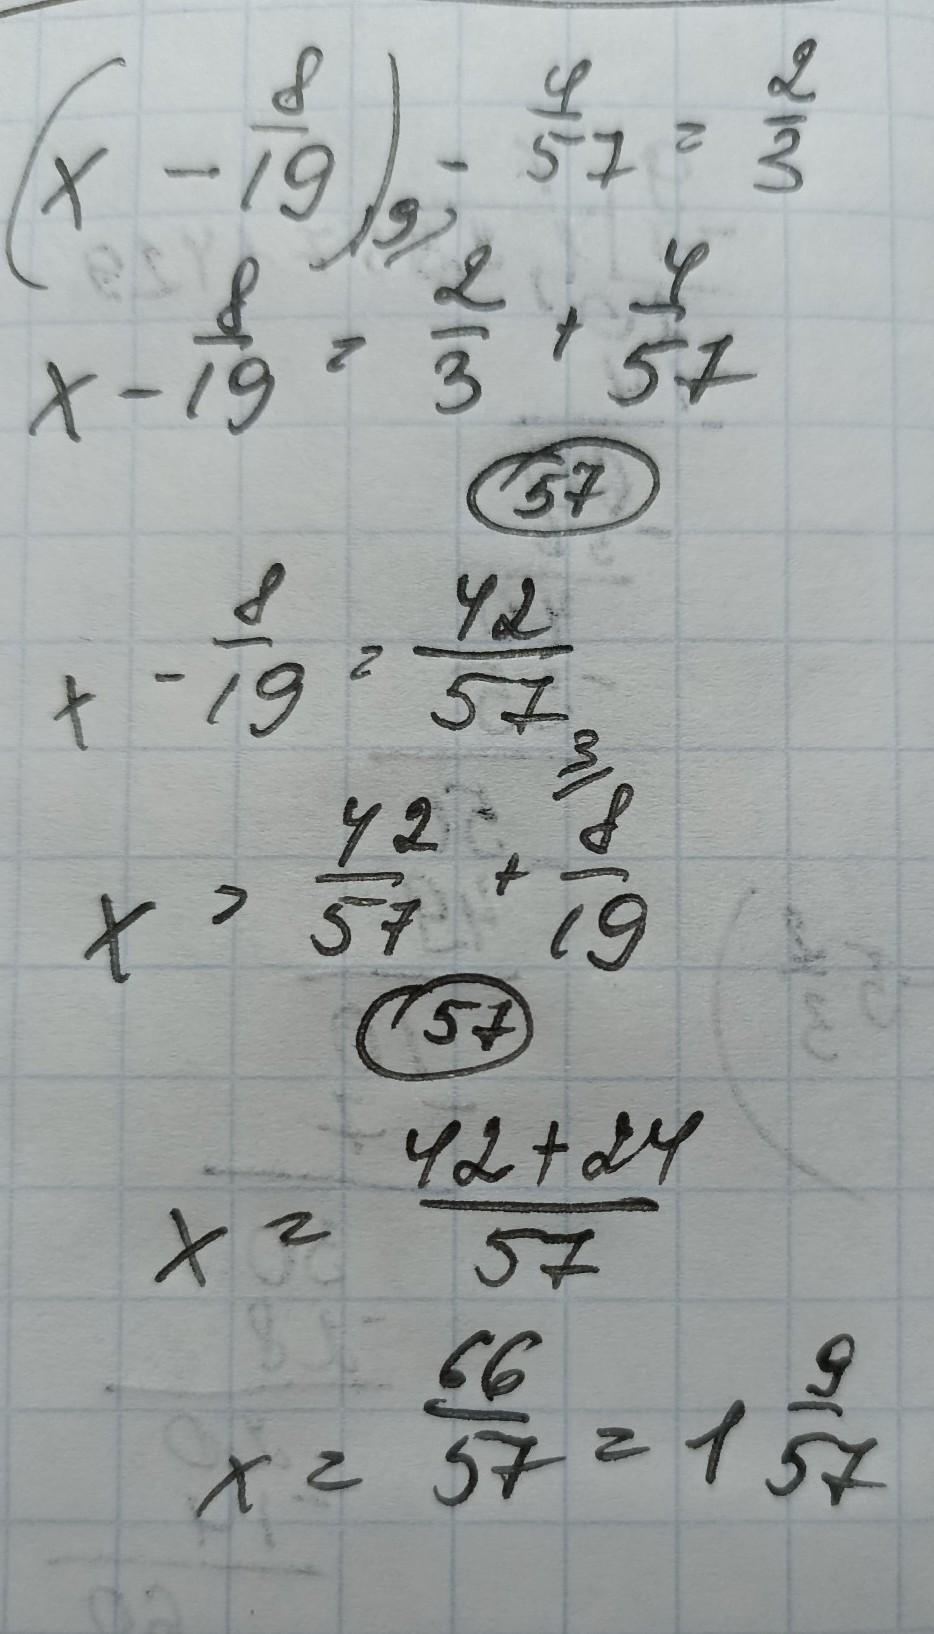 (x - 8/19) - 4/57 = 2/3
19/
x - 8/19 = 2/3 + 4/57
57
x - 8/19 = 42/57
3/
x = 42/57 + 8/19
57
x = 42+24/57
x = 66/57 = 1 9/57